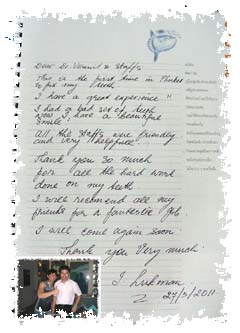 Dear Dr. & Staffs
This is the first time in Phuket
to fix my teeth
I have a great experience"
I had a bad set of teeth
now I have a beautiful
smile!
all the staffs were friendly
and very "helpfull"
Thank you so much
for all the hard work
done on my teeth
I will recomend all my
friends for a fantastic job.
I will come again soon!
Thank you Very much
27/3/2011